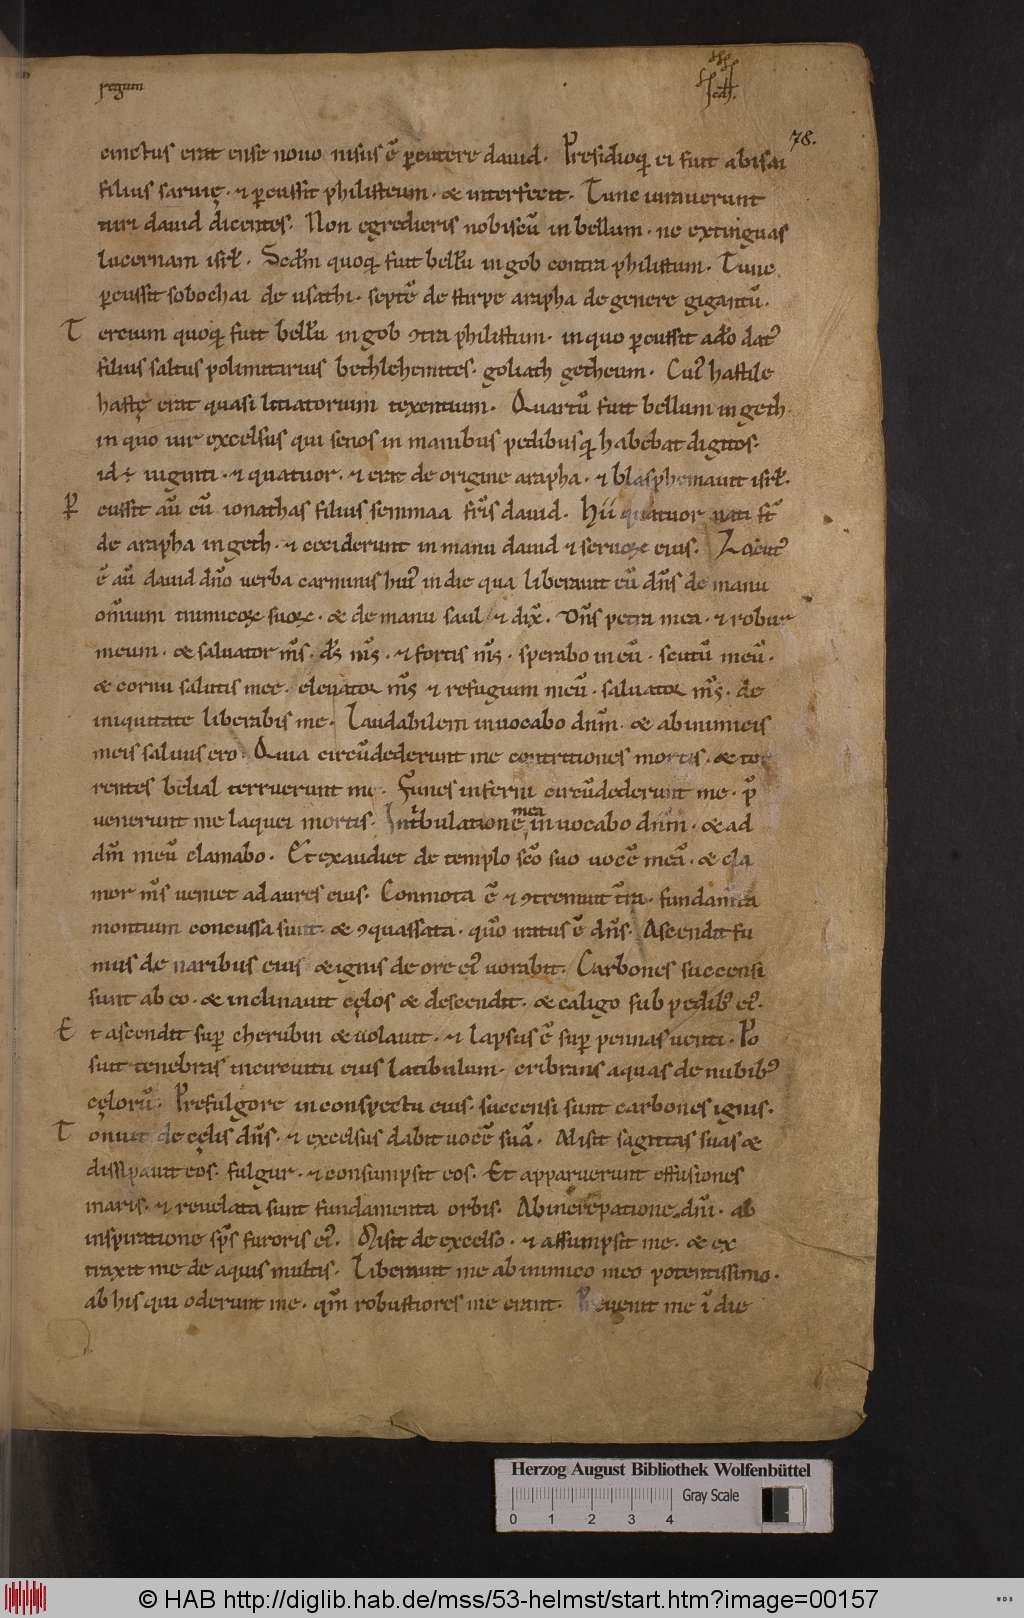 regum
Scd͞s.
78.
cinctus erat ense nouo nisus ē ꝑcutere dauid. Presidioq; ei fuit abisai
filius saruię. ⁊ ꝑcussit philisteum. & interfecit. Tunc iurauerunt
uiri dauid dicentes. Non egredieris nobiscū in bellum. ne extinguas
lucernam isrƚ. Scd̄m quoq; fuit bellū in gob contra philistum. Tunc
ꝑcussit sobochai de usathi. septē de stirpe arapha de genere gigantū.
Tercium quoq; fuit bellū in gob ꝯtra philistum. in quo ꝑcussit ado dat᾽
filius saltus polimitarius bethlehemites. goliath getheum. Cui᾽ hastile
hastę erat quasi litiatorium texentium. Quartū fuit bellum in geth.
in quo uir excelsus qui senos in manibus pedibusq; habebat digitos.
id ÷ uiginti. ⁊ quatuor. ⁊ erat de origine arapha. ⁊ blasphemauit isrƚ.
Ꝑcussit aū eū ionathas filius semmaa fr̄is dauid. Hii quatuor nati st̄
de arapha in geth. ⁊ ceciderunt in manu dauid ⁊ seruoꝝ eius. Locut᾽
ē aū dauid dn̄o uerba carminis hui᾽ in die qua liberauit eū dn̄s de manu
om̄ium inimicoꝝ suoꝝ. & de manu saul ⁊ dix̄. Dn̄s petra mea. ⁊ robur
meum. & saluator m̄s. ds̄ m̄s. ⁊ fortis m̄s. sperabo in eū. scutū meū.
& cornu salutis mee. eleuator m̄s ⁊ refugium meū. saluator m̄s. de
iniquitate liberabis me. Laudabilem inuocabo dnm̄. & ab inimicis
meis saluus ero. Quia circūdederunt me contritiones mortis. & tor
rentes belial terruerunt me. Funes inferni circūdederunt me. p̄
uenerunt me laquei mortis. In tribulatione mea inuocabo dnm̄. & ad
dm̄ meū clamabo. Et exaudiet de templo sc̄o suo uocē meā. & cla
mor m̄s ueniet ad aures eius. Conmota ē ⁊ ꝯtremuit t̄ra. fundam̄ta
montium concussa sunt. & ꝯquassata. qm̄o iratus ē dn̄s. Ascendit fu
mus de naribus eius & ignis de ore ei᾽ uorabit. Carbones succensi
sunt ab eo. & inclinauit cęlos & descendit. & caligo sub pedib᾽ ei᾽.
Et ascendit suꝑ cherubin & uolauit. ⁊ lapsus ē suꝑ pennas uenti. Po
suit tenebras in circuitu eius latibulum. cribrans aquas de nubib᾽
cęlorū. Prefulgore in conspectu eius. succensi sunt carbones ignis.
Tonuit de cęlis dn̄s. ⁊ excelsus dabit uocē suā. Misit sagittas suas &
dissipauit eos. fulgur. ⁊ consumpsit eos. Et apparuerunt effusiones
maris. ⁊ reuelata sunt fundamenta orbis. Ab increpatione dn̄i. ab
inspiratione sp̄s furoris ei᾽. Misit de excelso. ⁊ assumpsit me. & ex
traxit me de aquis multis. Liberauit me ab inimico meo potentissimo.
ab his qui oderunt me. qm̄ robustiores me erant. Preuenit me ī die
Herzog August Bibliothek Wolfenbüttel
Gray Scale
0 1 2 3 4
© HAB http://diglib.hab.de/mss/53-helmst/start.htm?image=00157